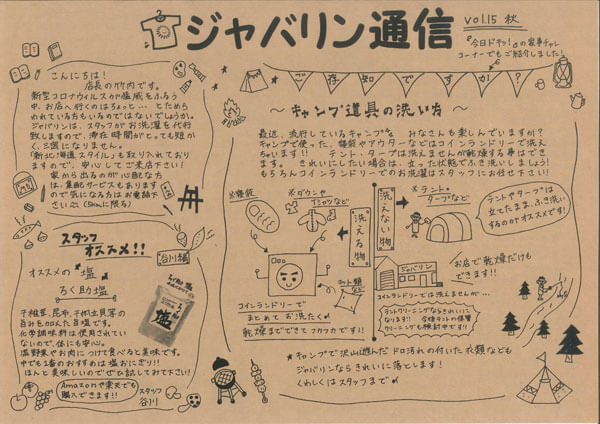 ジャバリン通信
vol.15 秋
"今日ドキッ!"の家事チャレ
コーナーでもご紹介しました!
こんにちは!
店長の竹内です。
新型コロナウィルスが猛威をふるう
中、お店へ行くのはちょっと…とためら
われている方もいるのではないでしょうか。
ジャバリンは、スタッフがお洗濯を代行
致しますので、滞在時間がとっても短か
く、3密になりません。
「新北海道スタイル」も取り入れており
ますので、安心してご来店下さい!
家から出るのが心配な方
は、集配サービスもあります
ので気になる方はお電話下
さい (5kmに限る)
スタッフ
オススメ!!
谷川編
オススメの"塩"
ろく助塩
干椎茸、昆布、干帆立貝等の
旨みを加えた白塩です。
化学調味料は使用されてい
ないので、体にも安心。
塩野菜やお肉につけて食べると美味です。
中でも1番のオススメは塩おにぎり!!
ほんと美味しいのでぜひ試してみて下さい!
Amazonや楽天でも
購入できます!!
スタッフ
谷川
塩
ご存知ですか?
〜キャンプ道具の洗い方〜
最近、流行しているキャンプ みなさんも楽しんでいますか?
キャンプで使った、寝袋やアウターなどはコインランドリーで洗え
ちゃいます!! テント、タープは洗えませんが乾燥する事はでき
ます。 きれいにしたい場合は、立った状態でふき洗いしましょう!
もちろんコインランドリーでのお洗濯はスタッフにお任せ下さい!
※寝袋
※ダウンや
Tシャツなど
洗える物
コインランドリーで
まとめてお洗たく
乾燥までできてフカフカです!!
洗えない物
※テント・
タープなど
テントやタープは
立てたまま、ふき洗い
するのがオススメです!
お店で乾燥だけも
できます!!
ジャバリン
コインランドリーでは洗えませんが…
テントクリーニングならきれいにい
なります!! 今後テントの保管
クリーニングも検討中です!!
★キャンプで沢山遊んだドロ汚れの付いた衣類なども
ジャバリンならきれいに落とします!
くわしくはスタッフまで